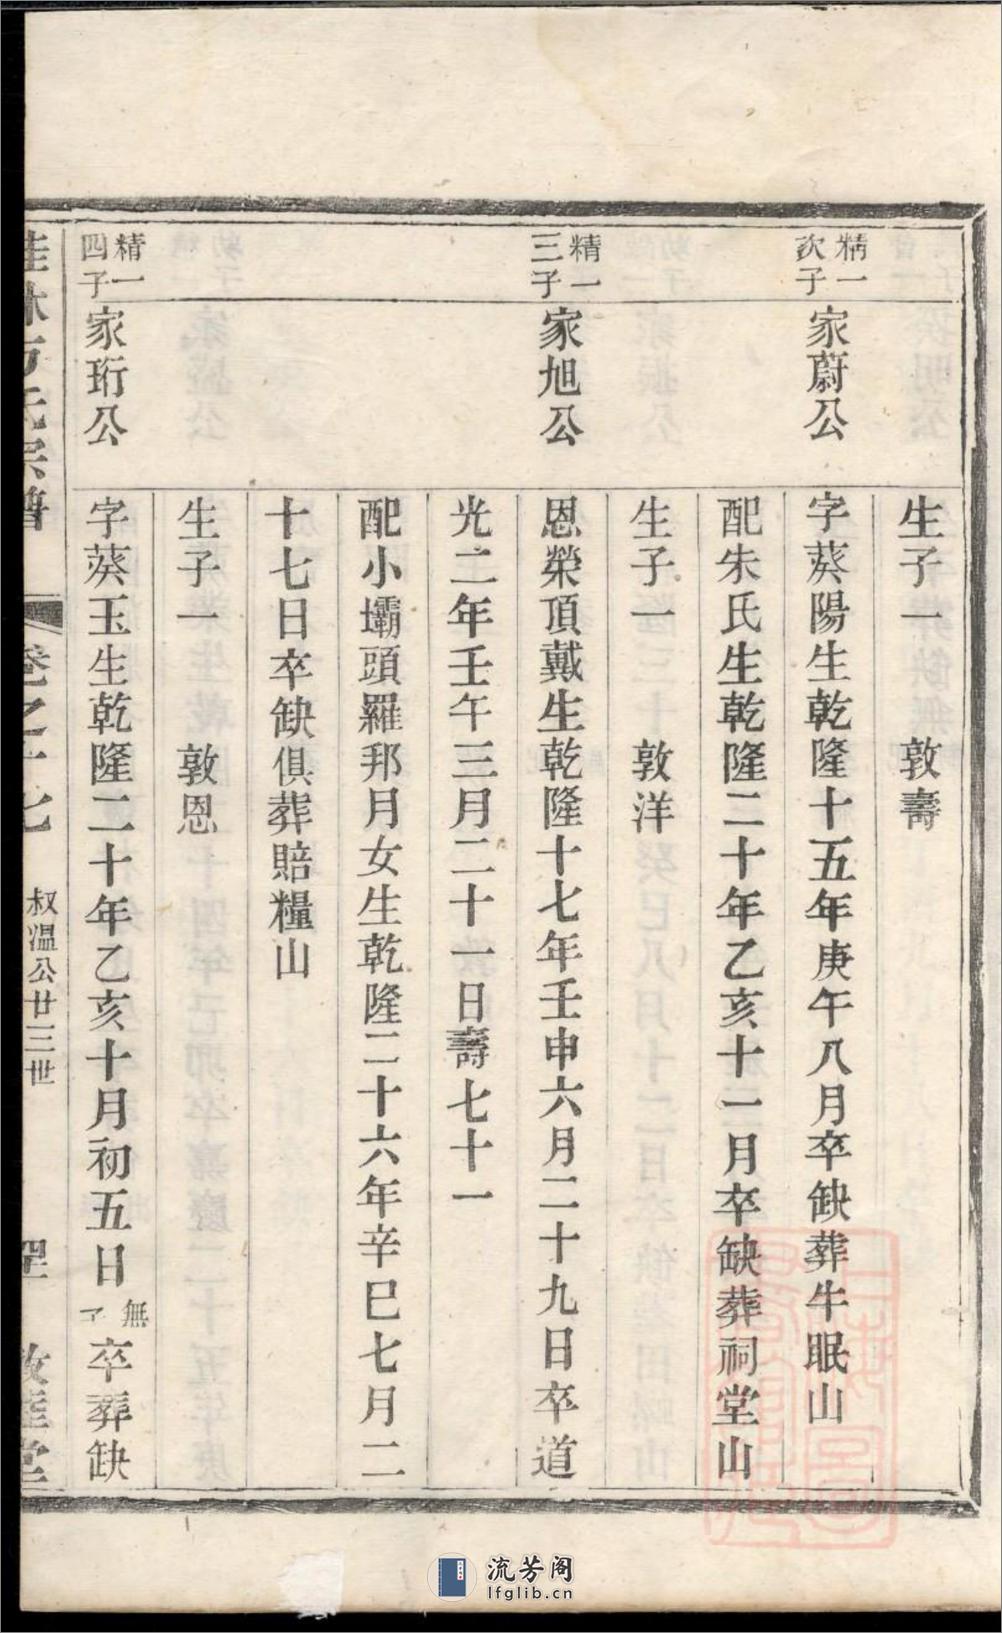 生子一　敦壽
精一次子
家蔚公
字葵陽生乾隆十五年庚午八月卒缺葬牛眠山
配朱氏生乾隆二十年乙亥十一月卒缺葬祠堂山
生子一　敦洋
精一三子
家旭公
恩榮頂戴生乾隆十七年壬申六月二十九日卒道
光二年壬午三月二十一日壽七十一
配小壩頭羅邦月女生乾隆二十六年辛巳七月二
十七日卒缺俱葬賠糧山
生子一　敦恩
精一四子
家珩公
字葵玉生乾隆二十年乙亥十月初五日無子卒葬缺
桂林方氏宗譜
卷之十七
叔溫公廿三世
敦睦堂
流芳阁
lfglib.cn